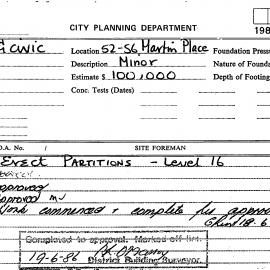 CITY PLANNING DEPARTMENT
198
CIVIC
Location 52-56, Martin Place
Foundation Press
Description Minor
Nature of Founda
Estimate $ 100,000
Depth of Footing
Conc. Tests (Dates)
D.A. No.
SITE FOREMAN
Erect Partitions - Level 16
approved
approved
Work commenced + complete
Completed to approval. Marked off list.
19-6-86
District Building Surveyor.